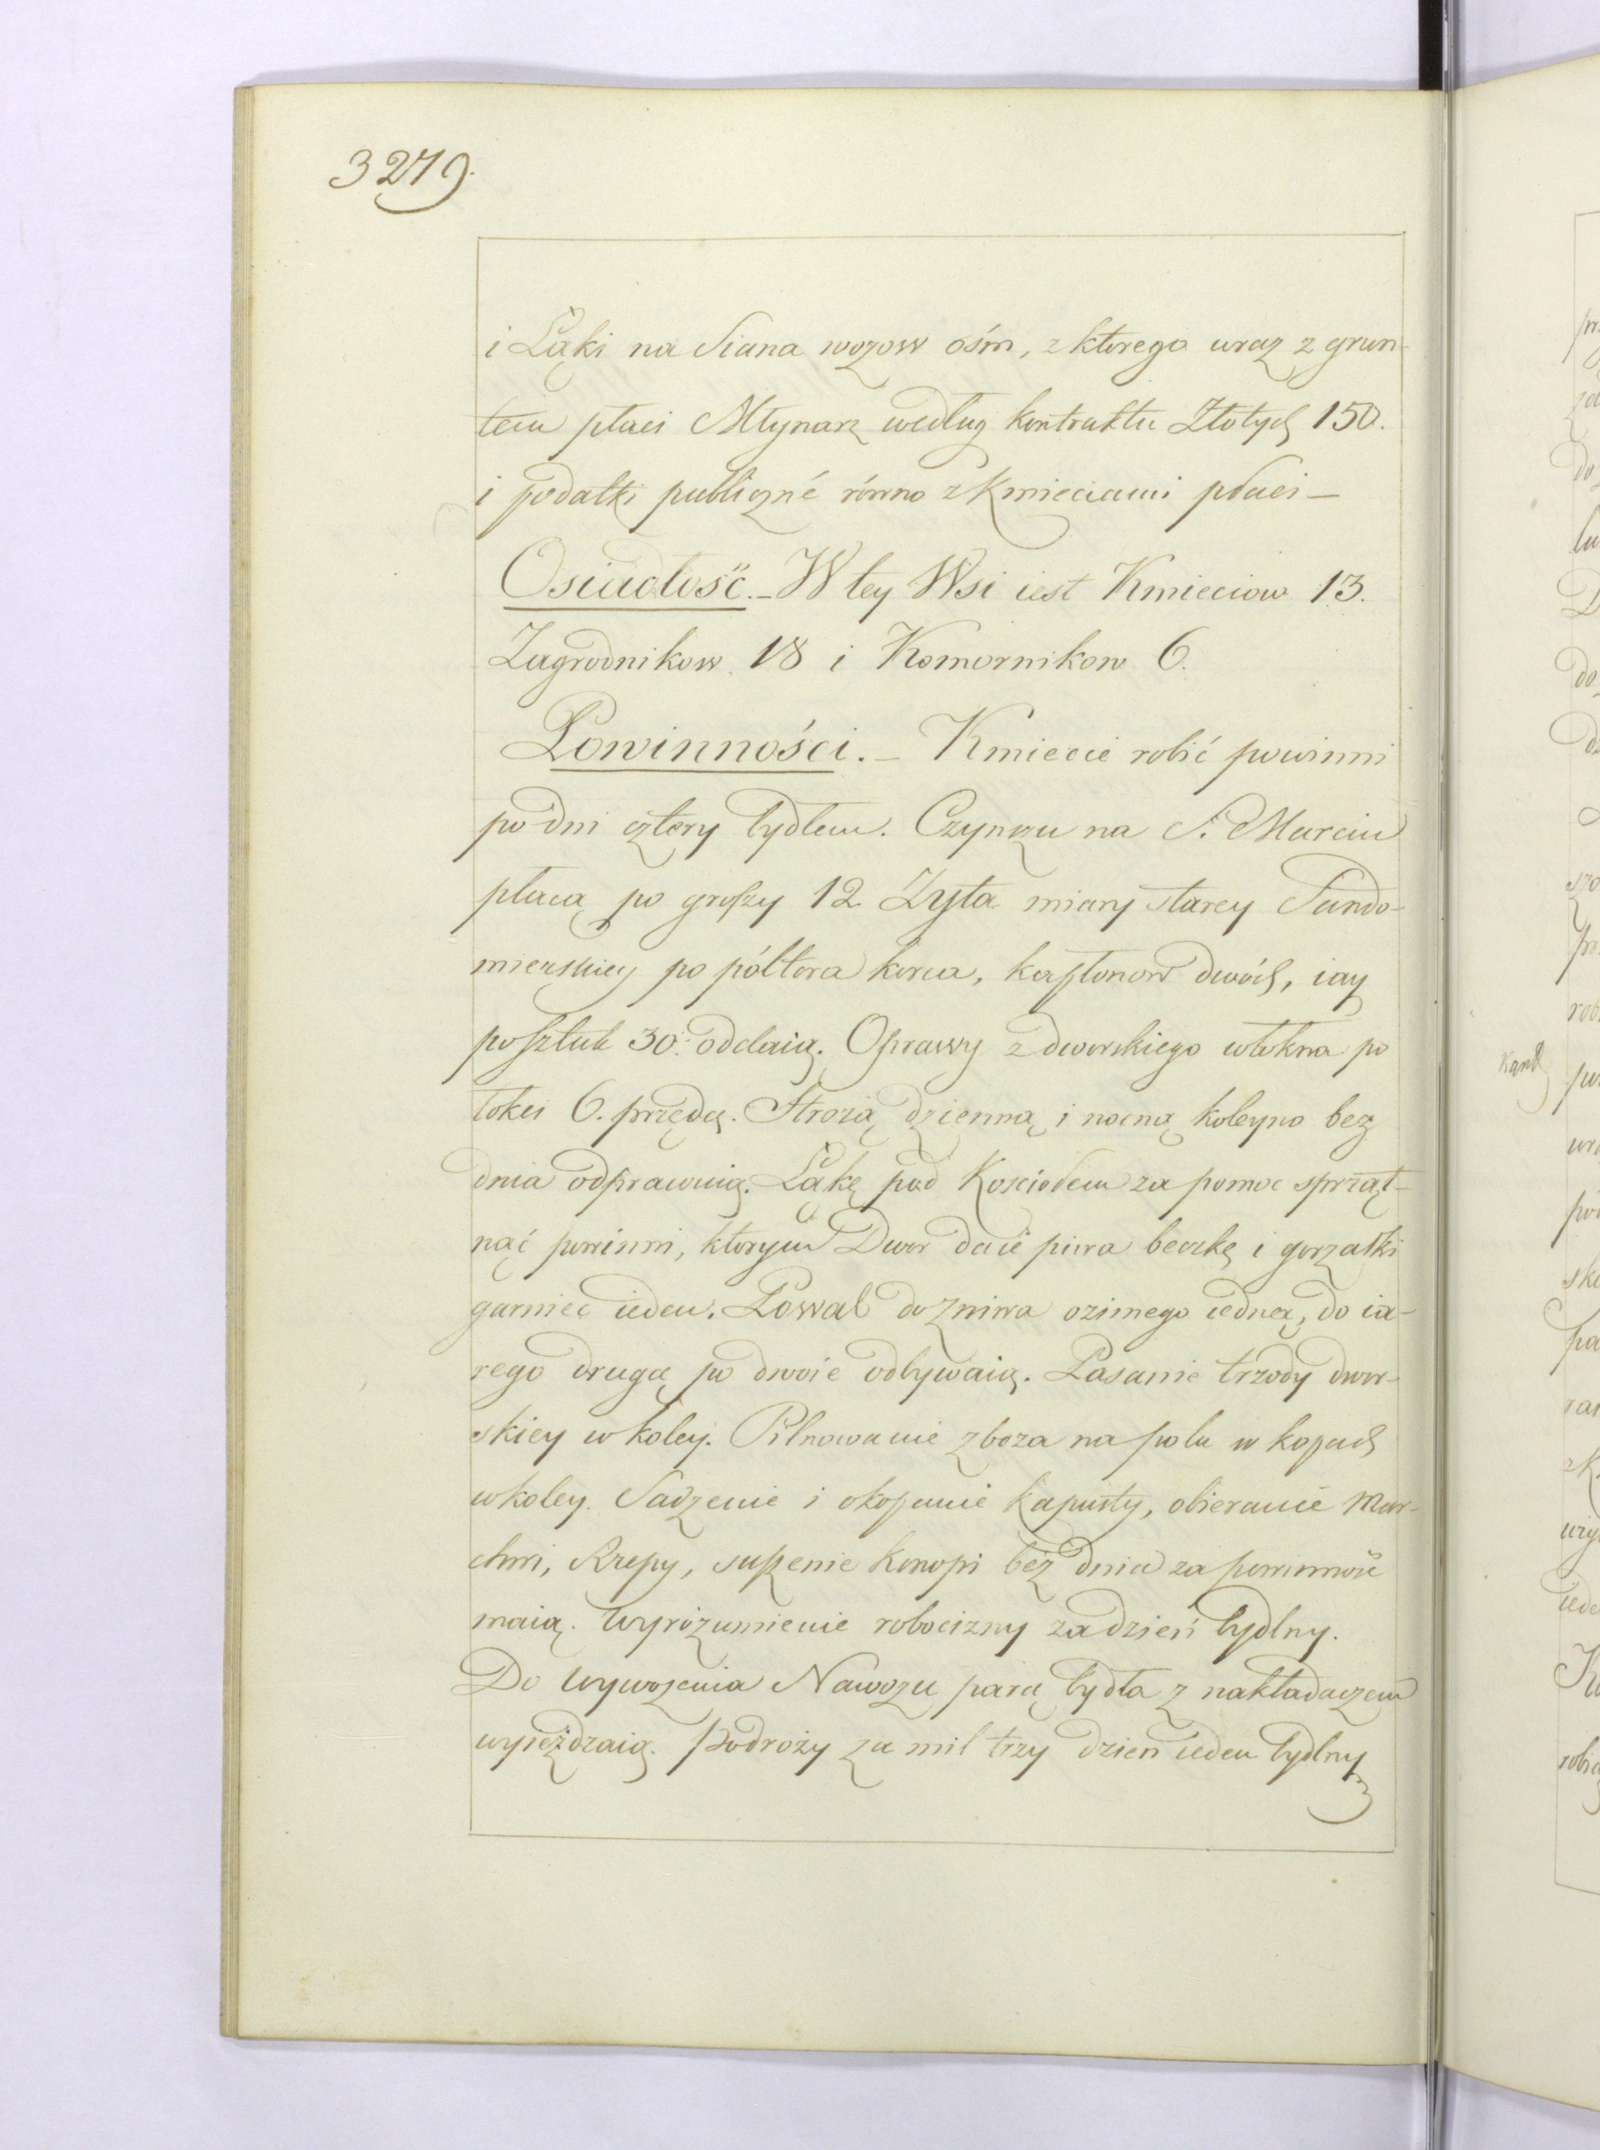 3279.
i Łąki na Siana wozow ośm, z ktorego wraz z grun-
tem płaci Młynarz według kontraktu Złotych 150.
i podatki publiczné równo z Kmieciami płaci -
Osiadłość. - W tey Wsi iest Kmieciow 13.
Zagrodnikow 18 i Komornikow 6.
Powinności. - Kmiecie robić powinni
po dni cztery bydłem. Czynszu na S. Marcin
płacą po groszy 12 Żyta miary starey Sando-
mierskiey po póltora korca, kapłonow dwóch, iay
po sztuk 30. oddaią. Oprawy z dworskiego włokna po
łokci 6. przędą. Strożą dzienną i nocną koleyno bez
dnia odprawuią. Łąkę pod Kosciołem za pomoc sprząt-
nąć powinni, ktorym Dwor daie piwa beczkę i gorzałki
garniec ieden. Powab do zniwa ozimego iedną, do ia-
rego drugą po dwoie odbywaią. Pasanie trzody dwor-
skiey w koley. Pilnowanie zboza na polu w kopach
w koley. Sadzenie i okopanie kapusty, obieranie Mar-
chwi, Rzepy, suszenie konopi bez dnia za powinność
maią. Wyrozumienie robocizny za dzień bydlny.
Do wywozenia Nawozu parą bydła z nakładaczem
wyieżdzaią. Podroży za mil trzy dzien ieden bydlny